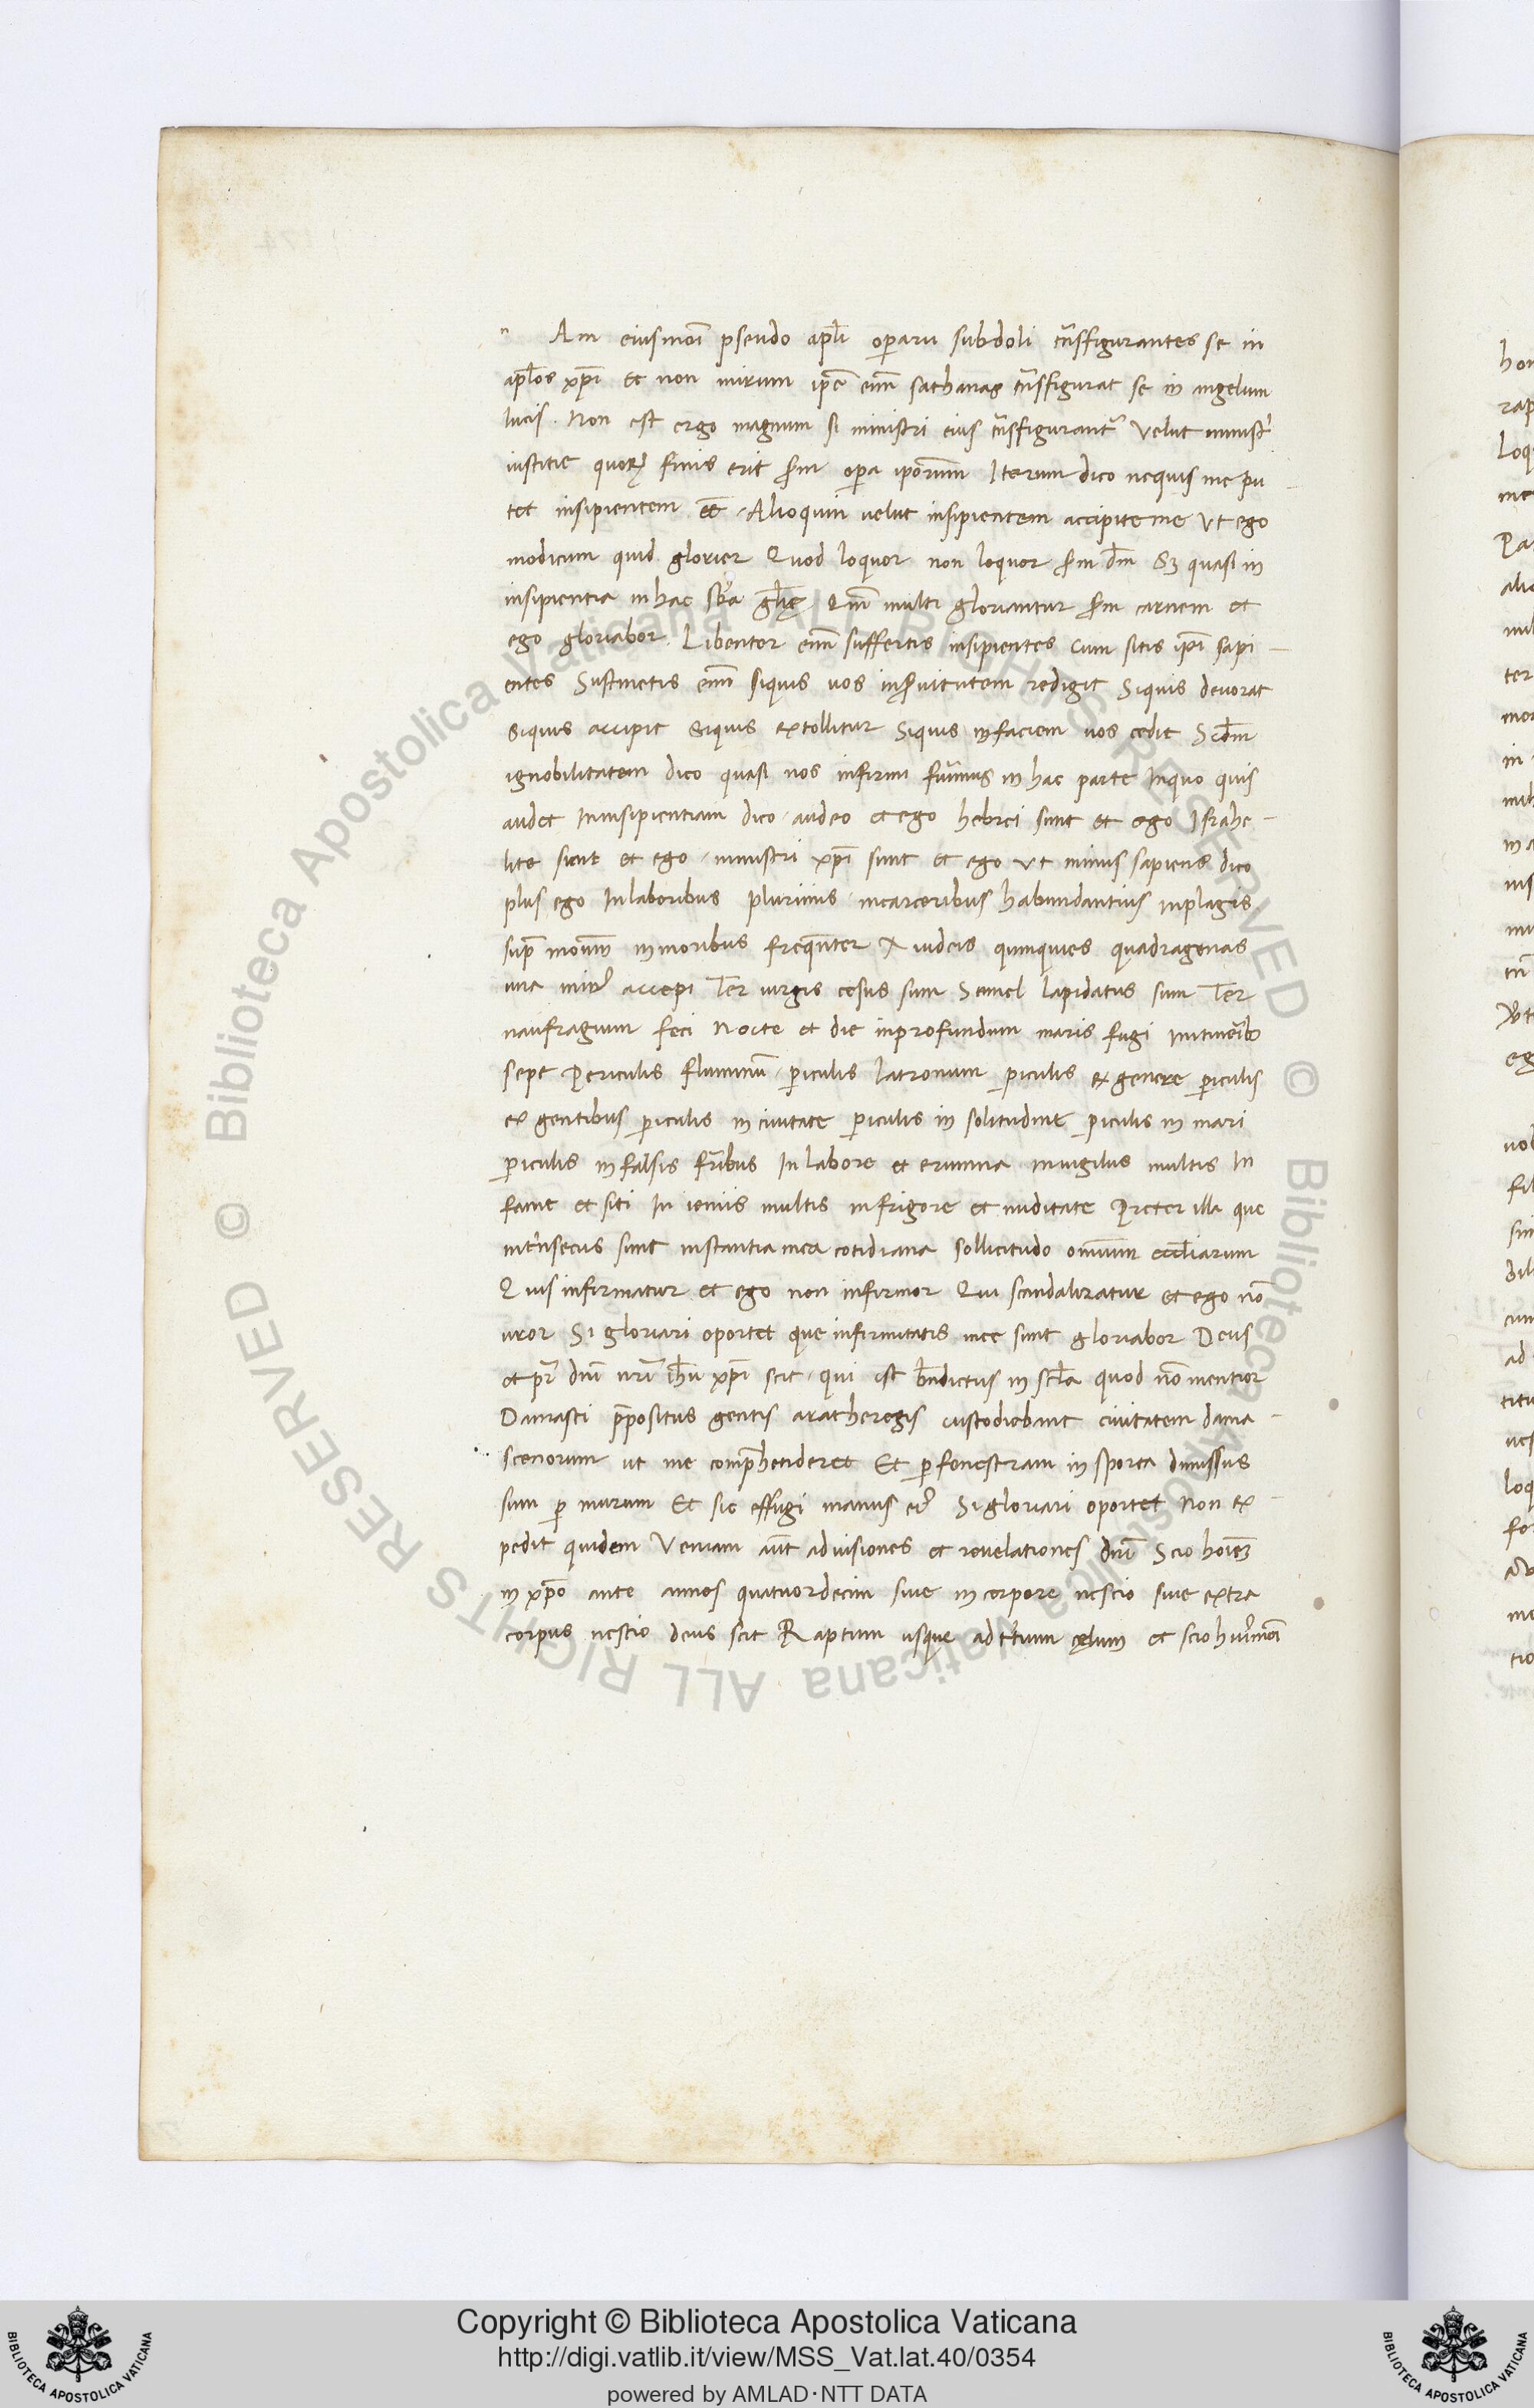 n Am eiusmōi pseudo apl̄i operarii subdoli trāsfigurantes se in
apl̄os xp̄i et non mirum ip̄e enī sathanas trāsfigurat se in angelum
lucis. Non est ergo magnum si ministri eius trāsfigurant᷑ Velut ministri
iustitie quoꝝ finis erit scđm opera ip̄orum Iterum dico nequis me pu
tet insipientem eē. Alioquin uelut insipientem accipite me Vt ego
modicum quid glorier Quod loquor non loquor scđm dm̄ Sꝫ quasi in
insipientia in hac sb̄a gl̄ię Qm̄ multi gloriantur scđm carnem et
ego gloriabor. Libenter enī suffertis insipientes Cum sitis ip̄i sapi
entes Sustinetis enī siquis uos in seruitutem redigit Siquis deuorat
Siquis accipit Siquis extollitur Siquis in faciem uos cedit Scđm
ignobilitatem dico quasi nos infirmi fuimus in hac parte Inquo quis
audet In insipientiam dico. audeo et ego hebrei sunt et ego Israhe
lite sunt et ego. ministri xp̄i sunt et ego Vt minus sapiens dico
plus ego In laboribus plurimis. incarceribus habundantius Inplagis
sup̄ modum in moribus frequenter A iudeis quinquies quadragenas
una minꝰ accepi Ter uirgis cesus sum Semel lapidatus sum Ter
naufragium feci Nocte et die inprofundum maris fugi Initinerib
sepe Periculis fluminū. ꝑiculis latronum ꝑiculis ex genere ꝑiculis
ex gentibus ꝑiculis in ciuitate ꝑiculis in solitudine ꝑiculis in mari
ꝑiculis in falsis fr̄ibus In labore et erumna Inuigilus multis In
fame et siti In ieiuniis multis in frigore et nuditate Preter illa que
intrinsecus sunt instantia mea cotidiana sollicitudo omnium eccl̄iarum
Quis infirmatur et ego non infirmor Qui scandalizatur et ego nō
uror Si gloriari oportet que infirmitatis mee sunt gloriabor Deus
et pr̄ dn̄i nr̄i ih̄u xp̄i scit. qui est bn̄dictus in scl̄a quod nō mentior
Damasci p̄positus gentis arathe regis custodiebant ciuitatem dama
scenorum ut me comp̄henderet Et ꝑ fenestram in sporta dimissus
sum ꝑ murum Et sic effugi manus eiꝰ Si gloriari oportet Non ex
pedit quidem Veniam aūt ad uisiones et reuelationes dn̄i Scio hoīeꝫ
in xp̄o ante annos quatuordecim siue in corpore nescio siue extra
corpus nescio deus scit Raptum usque ad tertium cęlum et scio hui᷑moī
hon
rap
Loq
me
Copyright © Biblioteca Apostolica Vaticana
http://digi.vatlib.it/view/MSS_Vat.lat.40/0354
powered by AMLAD·NTT DATA
BIBLIOTECA APOSTOLICA VATICANA
BIBLIOTECA APOSTOLICA VATICANA
© Biblioteca Apostolica Vaticana ALL RIGHTS RESERVED © Biblioteca Apostolica Vaticana ALL RIGHTS RESERVED